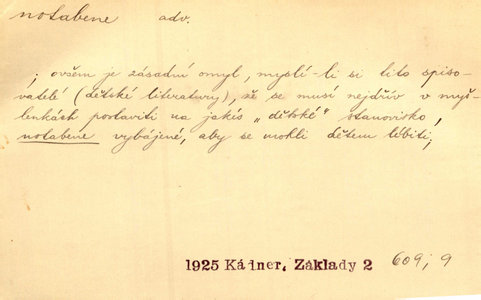 notabene adv.
; ovšem je zásadní omyl, myslí-li si tito spiso-
vatelé (dětské literatury), že se musí nejdřív v myš-
lenkách postaviti na jakés „dětské" stanovisko,
notabene vybájené, aby se mohli dětem líbiti;
1925 Kádner, Základy 2 609; 9